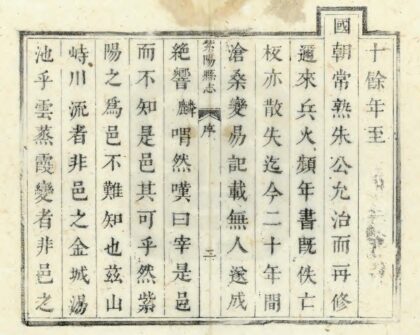 十餘年至
國朝常熟朱公允治而再修
邇來兵火頻年書旣佚亡
板亦散失迄今二十年間
滄桑變易記載無人遂成
紫陽縣志 序 三
絶響麟喟然嘆曰宰是邑
而不知是邑其可乎然紫
陽之爲邑不難知也茲山
峙川流者非邑之金城湯
池乎雲蒸霞變者非邑之